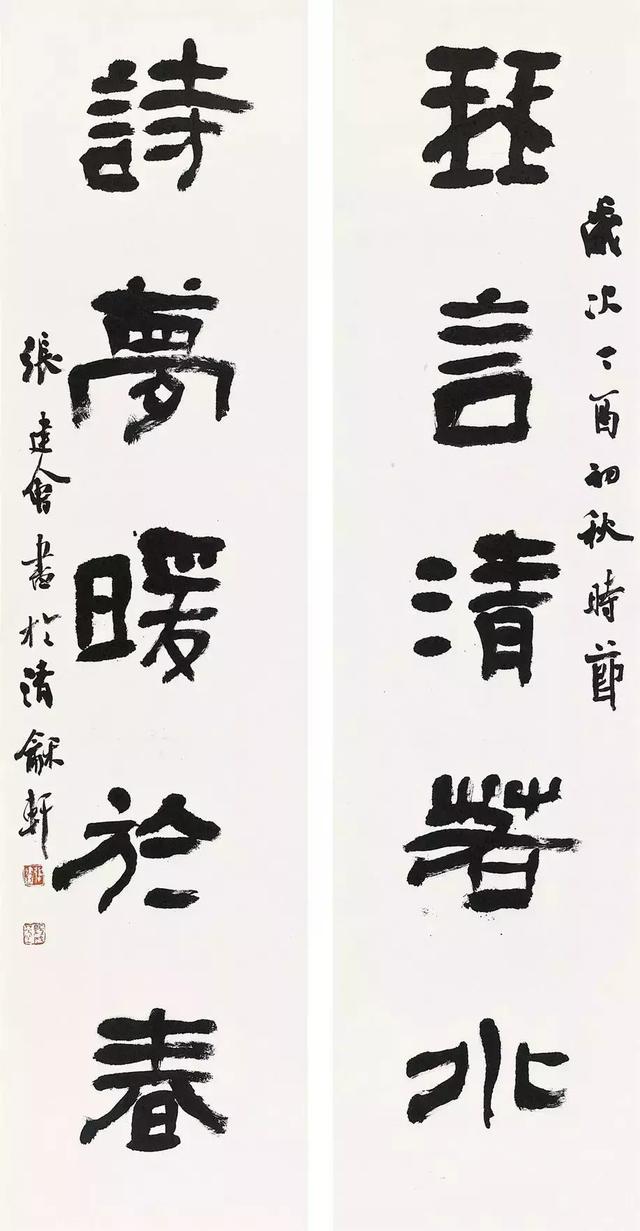 歲次酉初秋時節
琴言清若水
詩夢暖於春
張建會書於清龢軒